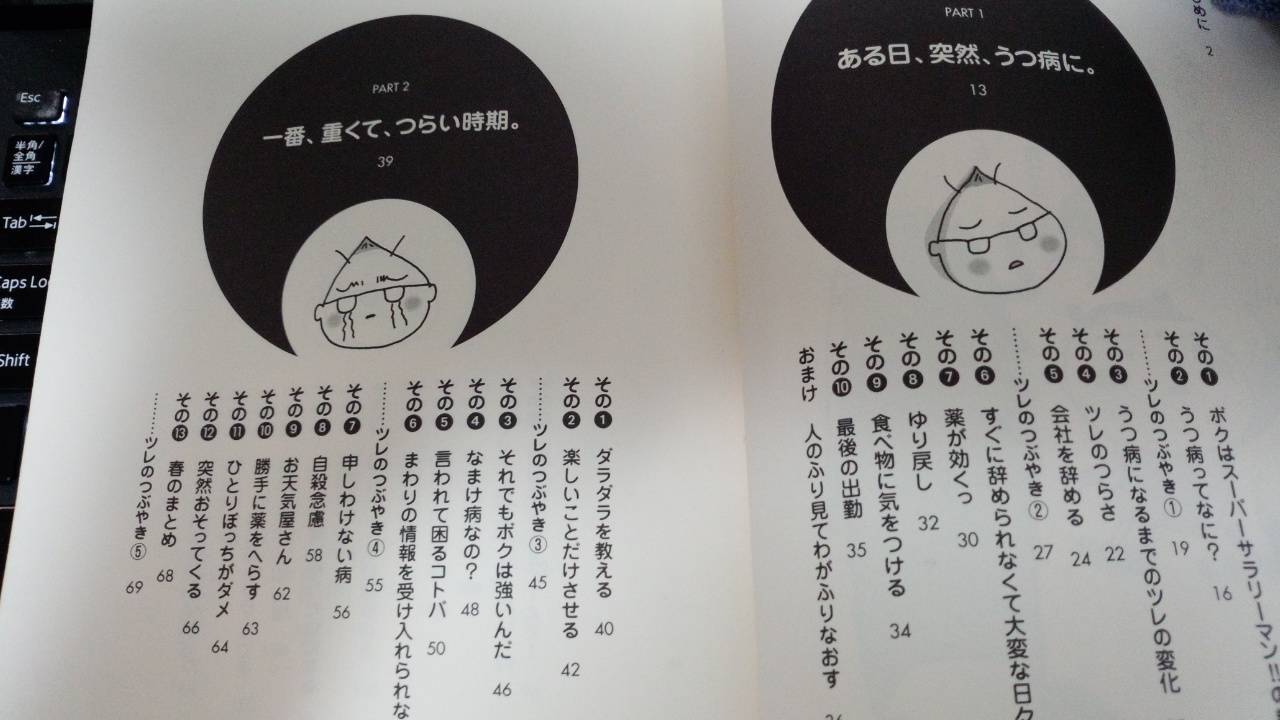 めに 2
PART 1
ある日、突然、うつ病に。
13
その❶ ボクはスーパーサラリーマン!!の
その❷ うつ病ってなに? 16
………ツレのつぶやき① 19
その❸ うつ病になるまでのツレの変化
その❹ ツレのつらさ 22
その❺ 会社を辞める 24
………ツレのつぶやき② 27
その❻ すぐに辞められなくて大変な日々
その❼ 薬が効くっ 30
その❽ ゆり戻し 32
その❾ 食べ物に気をつける 34
その❿ 最後の出勤 35
おまけ 人のふり見てわがふりなおす
PART 2
一番、重くて、つらい時期。
39
その❶ ダラダラを教える 40
その❷ 楽しいことだけさせる 42
………ツレのつぶやき③ 45
その❸ それでもボクは強いんだ 46
その❹ なまけ病なの? 48
その❺ 言われて困るコトバ 50
その❻ まわりの情報を受け入れられな
………ツレのつぶやき④ 55
その❼ 申しわけない病 56
その❽ 自殺念慮 58
その❾ お天気屋さん 62
その❿ 勝手に薬をへらす 63
その⓫ ひとりぼっちがダメ 64
その⓬ 突然おそってくる 66
その⓭ 春のまとめ 68
………ツレのつぶやき⑤ 69
Esc
半角/
全角
漢字
Tab
Caps Lo
数
Shift